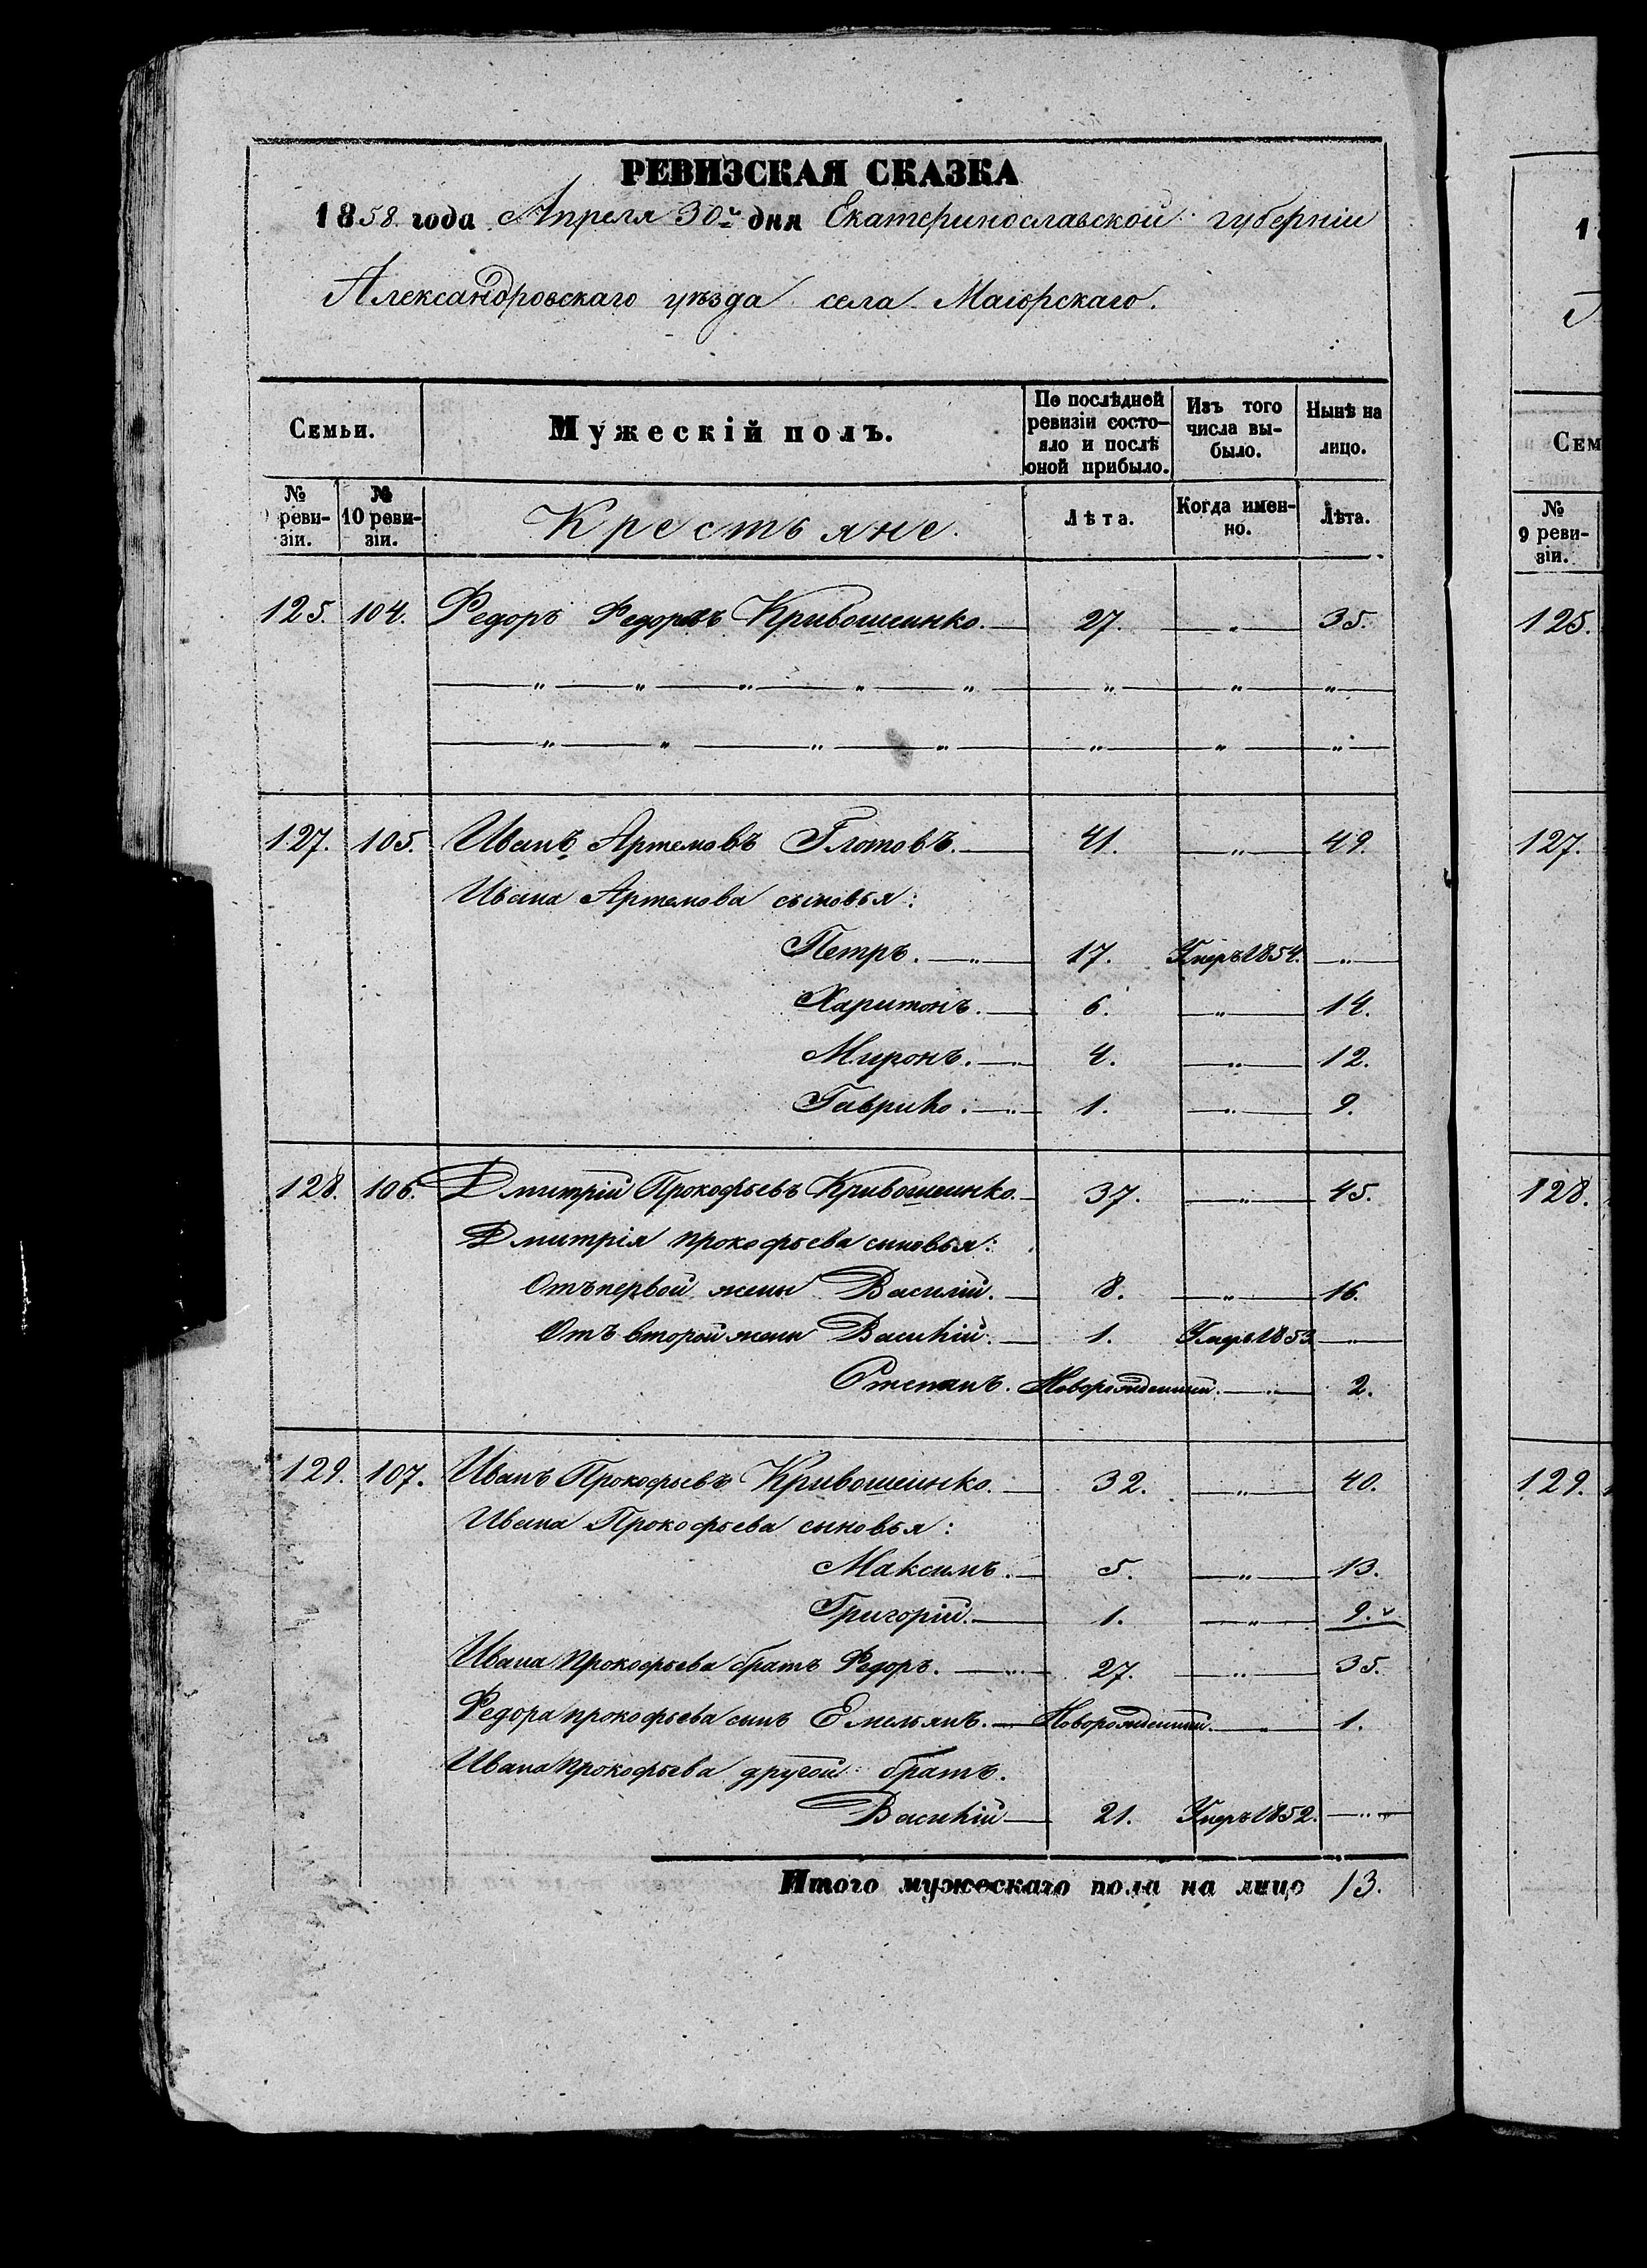 РЕВИЗСКАЯ СКАЗКА
1858. года Апреля 30го дня Екатеринославской губерніи
Александровскаго уѣзда села Маіорскаго.
Семьи.
Мужескій полъ.
По послѣдней ревизіи состо-
яло и послѣ оной прибыло.
Изъ того числа вы-
было.
Нынѣ на лицо.
№ реви-
зіи.
№ 10 реви-
зіи.
Крестьяне.
Лѣта.
Когда имен-
но.
Лѣта.
125. 104. Федоръ Федоровъ Кривошеинко. 27. " 35.
" " " " " " " "
" " " " " " "
127. 105. Иванъ Артемовъ Глотовъ. 41. " 49.
Ивана Артемова сыновья:
Петръ. " 17. Умеръ 1854. "
Харитонъ. 6. " 14.
Миронъ. 4. " 12.
Гаврило. " 1. " 9.
128. 106. Дмитрій Прокофьевъ Кривошеинко. 37. " 45.
Дмитрія Прокофьева сыновья:
Отъ первой жены Василій. 8. " 16.
Отъ второй жены Василій. 1. Умеръ 1853 "
Степанъ. Новорожденный. " 2.
129. 107. Иванъ Прокофьевъ Кривошеинко. 32. " 40.
Ивана Прокофьева сыновья:
Максимъ. 5. " 13.
Григорій. 1. " 9.
Ивана Прокофьева братъ Федоръ. " 27. " 35.
Федора Прокофьева сынъ Емельянъ. Новорожденный. " 1.
Ивана Прокофьева другой братъ.
Василій 21. Умеръ 1852. "
Итого мужескаго пола на лицо 13.
1
Сем
№ 9 реви-
зіи.
125.
127.
128.
129.